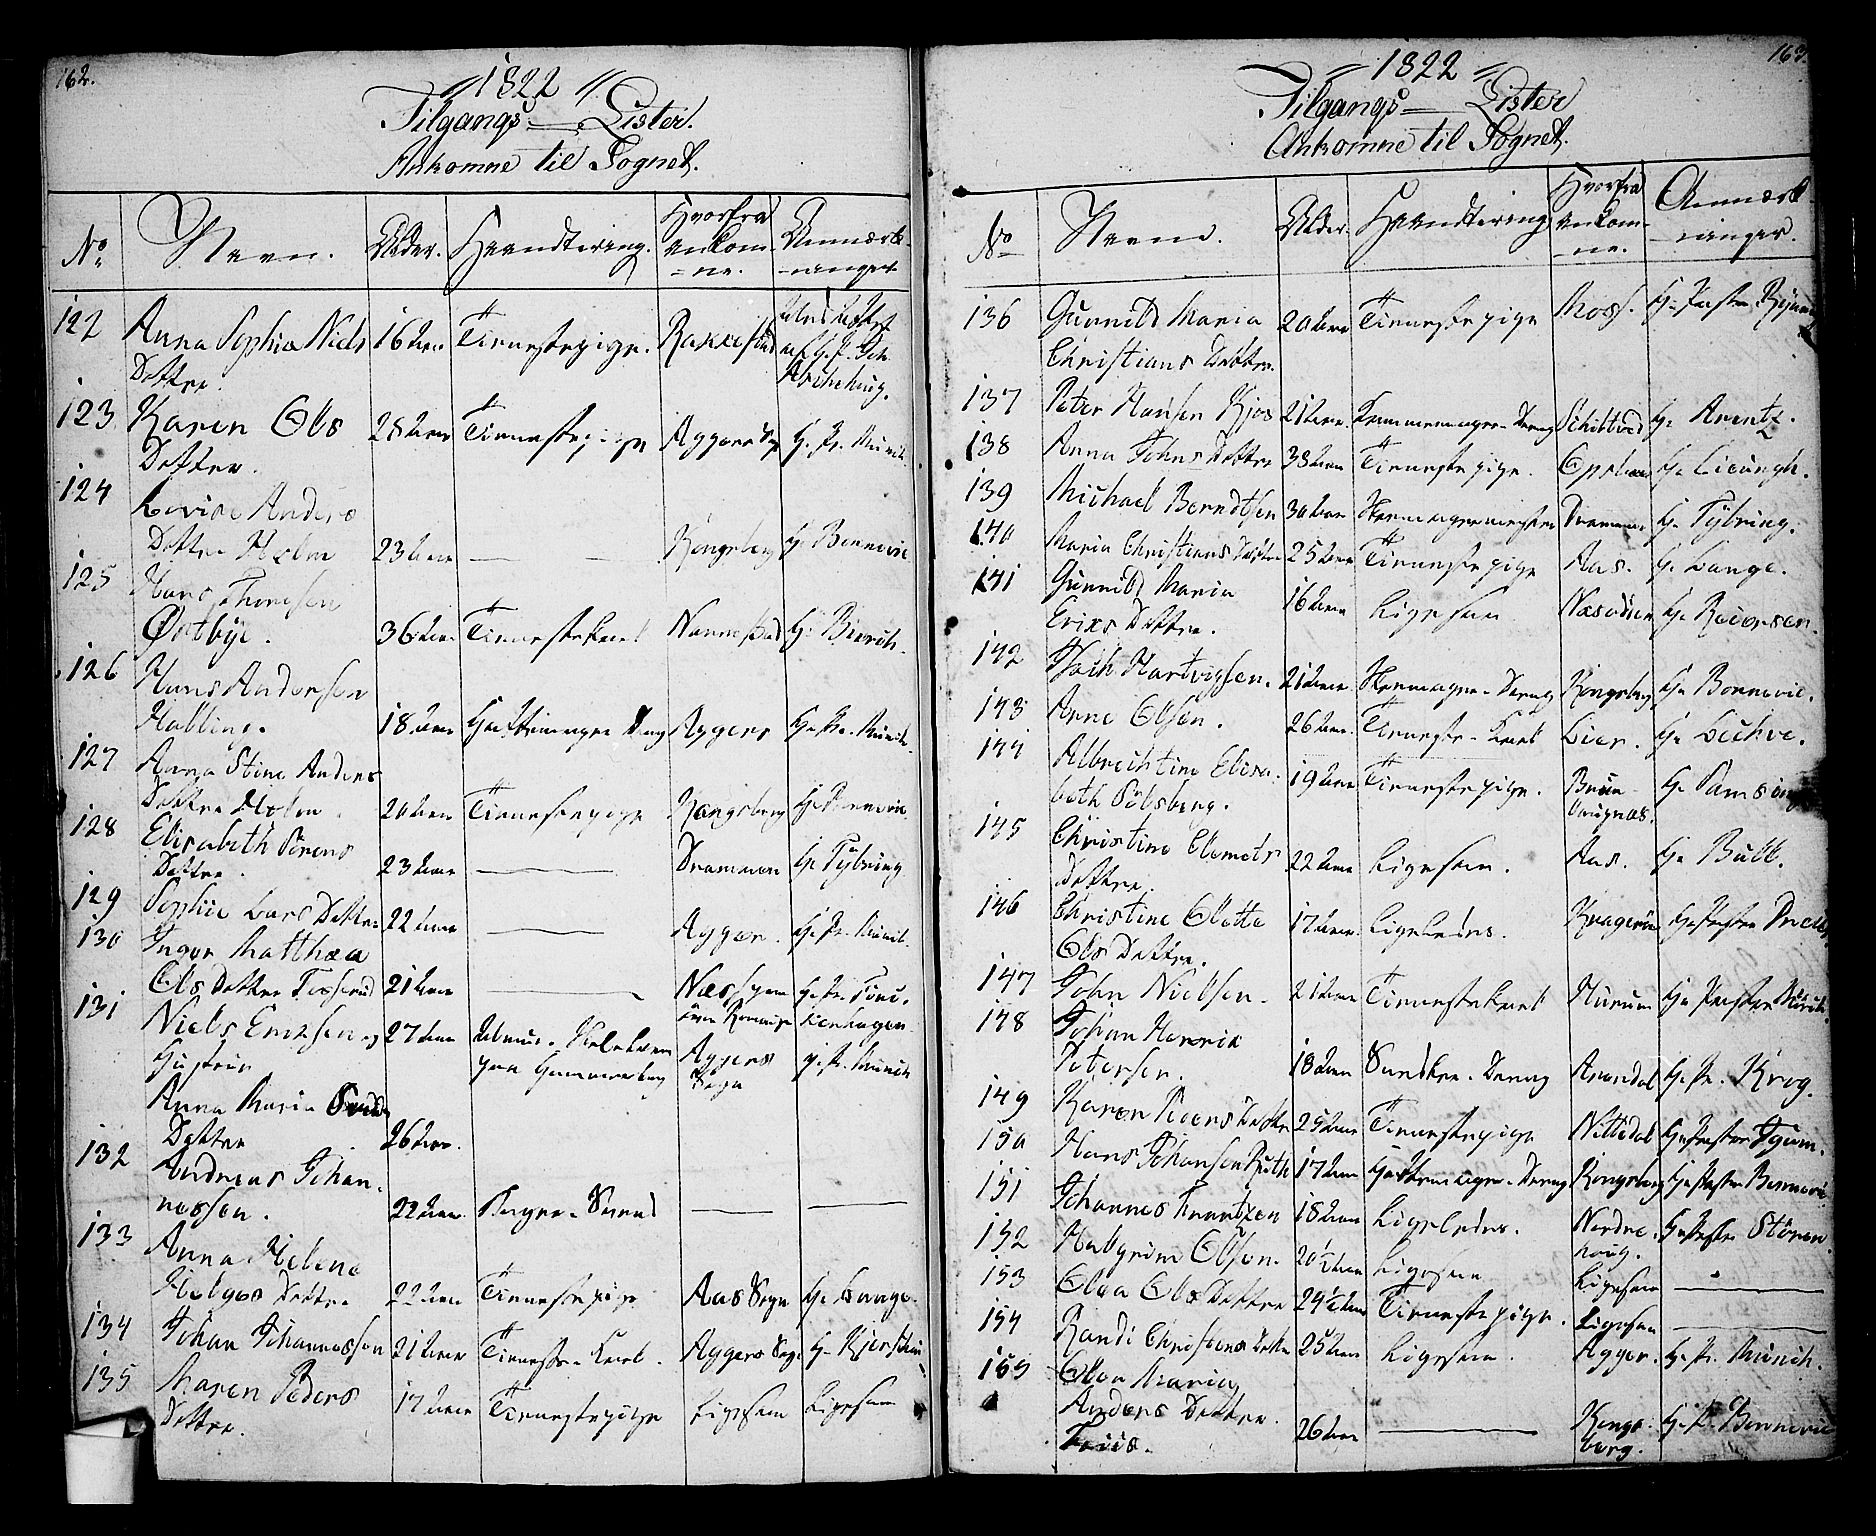 162.
1822
Tilgangs - Lister.
Ankomne til Sognet.
No
Navn.
Alder.
Haandtering.
Hvorfra
ankom-
-ne.
Anmærk-
-ninger
122
Anna Sophia Niels
Datter.
16 Aar
Tienestepige.
Rakkestad
123
Karen Ols
Datter.
28 Aar
Tienestepige
Aggers Sg
Hr Pr. Münch
124
Lovise Anders
Datter Holm
23 Aar
Kongsberg
Hr Bonnevie
125
Hans Thoresen
Østbye.
36 Aar
Tienestekarl
Nannestad
Hr
126
Hans Andersen
Halling.
18 Aar
Aggers
Hr Pr. Münch
127
Anna Stine Anders
Datter Holm.
20 Aar
Tienestepige
Kongsberg
Hr Bonnevie
128
Elisabeth Sørens
Datter.
23 Aar
Drammen
Hr Tybring
129
Sophie Lars Datter
22 Aar
Agger.
Hr Pr. Münch
130
Inger Matthea
Ols Datter
21 Aar
Næss
131
Niels Erichsen og
Hustrue
27 Aar
paa Hammersborg
Aggers
Sogn
Hr Pr. Münch
Anna Maria
Datter
26 Aar.
132
Andreas Johan-
nessen.
22 Aar.
Bager - Svend
133
Anna Helene
Helges Datter
22 Aar
Tienestepige
Aas Sogn
Hr Lange.
134
Johan Johannessen
21 Aar
Tieneste - Karl.
Aggers Sogn
135
Maren Peders
Datter.
17 Aar
Tienestepige
Ligesaa
Ligesaa
163
1822
Tilgangs - Lister
Ankomne til Sognet.
No
Navn.
Alder.
Haandtering
Hvorfra
ankom-
-ne.
Anmærk-
-ninger.
136
Gunnild Maria
Christians Datter.
20 Aar
Tienestepige
Moss.
Hr Pastor
137
Peter Hansen Kjos
21 Aar
Hr Arentz.
138
Anna Johns Datter
38 Aar
Tienestepige.
139
Michael Berndtsen
30 Aar
Skomagermester
Drammen
Hr Tybring.
140
Maria Christians Datter
25 Aar
Tienestepige
Aas.
Hr Lange.
141
Gunnild Maria
Erics Datter.
16 Aar
Ligesaa
Næsodden
142
Hartvigsen.
21 Aar
Skomager - Dreng
Kongsberg
Hr Bonnevie.
143
Arne Olsen.
26 Aar.
Tieneste - Karl
Lier.
144
Albrechtine Elisa-
beth Solsberg.
19 Aar
Tienestepige.
145
Christine Clemets
Datter.
22 Aar
Ligesaa.
Aas.
Hr Bull.
146
Christine Olette
Ols Datter.
17 Aar.
Ligeledes.
Kragerøe
Hr Pastor
147
John Nielsen.
21 Aar
Tienestekarl
Hurum
Hr Pastor
148
Johan Henric
Petersen.
18 Aar
Arendal
Hr Pr. Krog.
149
Karen Peders Datter
25 Aar
Tienestepige
Nittedal
Hr Pastor
150
Hans Johansen
17 Aar
Kongsberg
Hr Pastor Bonnevie
151
Johannes Frantzen
18 Aar
Ligeledes.
Nordre-
houg.
Hr Pastor Støren.
152
Halgrim Olsen.
20½ Aar
Ligesaa
Ligesaa
153
Olea Ols Datter
24½ Aar
Tienestepige.
Ligesaa
154
Randi Christens Datter
25 Aar
Ligesaa.
Agger.
Hr Pr. Münch.
155
Olea Maria
Anders Datter.
26 Aar
Kongs-
berg.
Hr P. Bonnevie